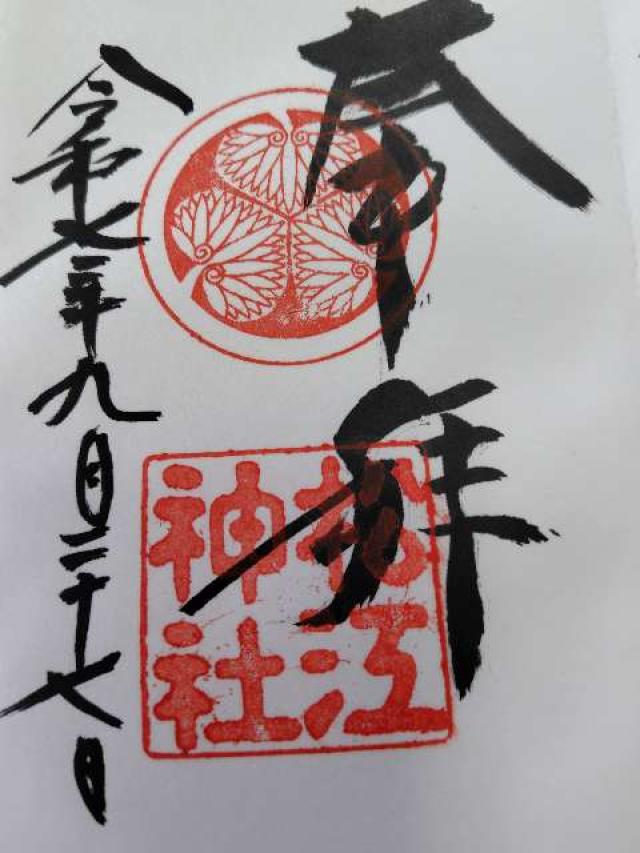 奉拝
松江
神社
令和七年九月二十七日